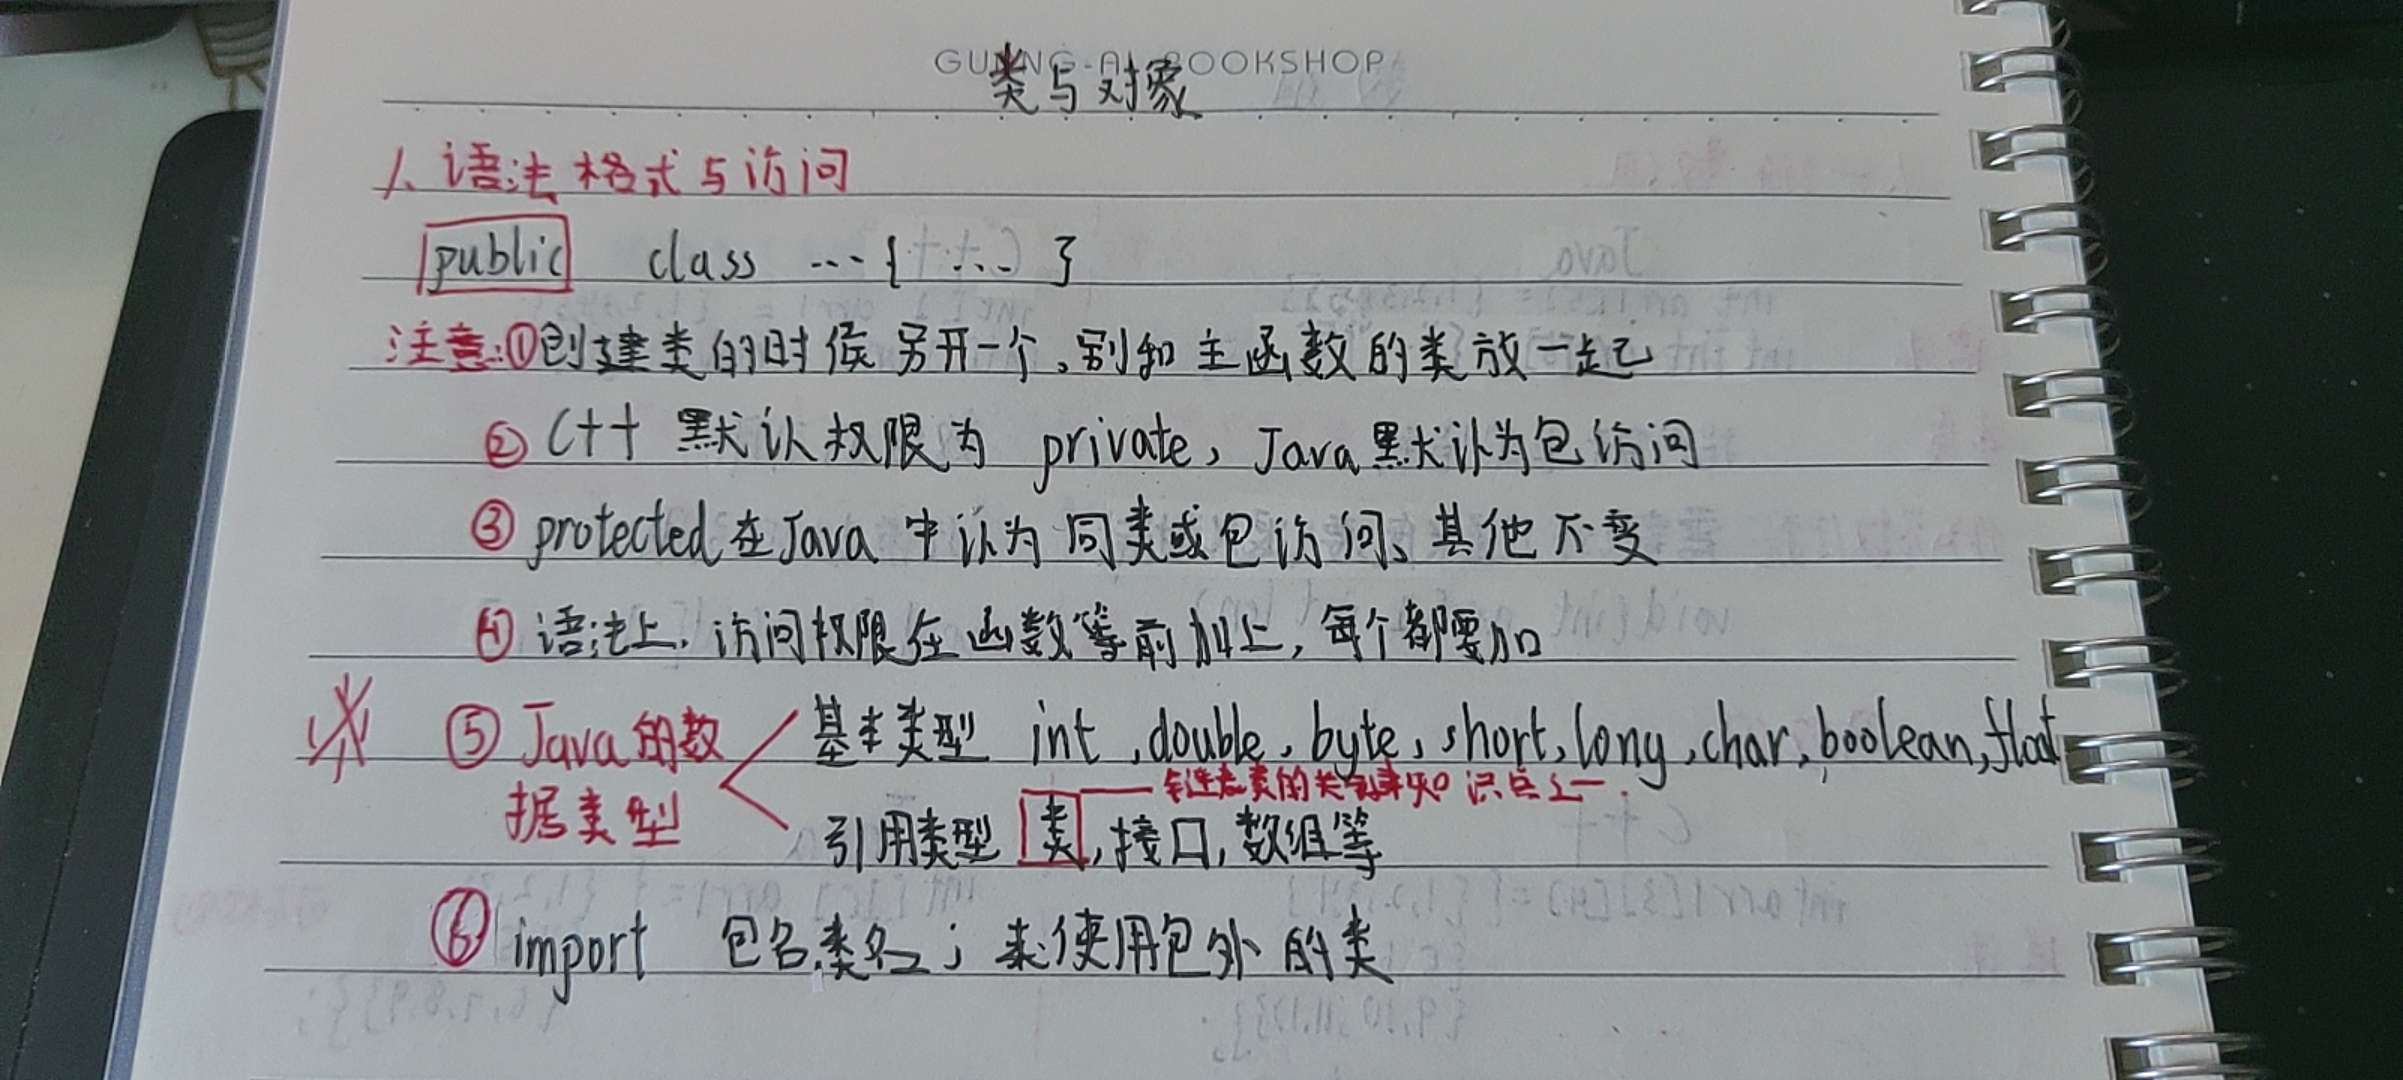 GUANG-AI BOOKSHOP
类与对象
1、语法格式与访问
public class ...{ ... }
注意:①创建类的时候另开一个,别和主函数的类放一起
② C++ 默认权限为 private, Java默认为包访问
③ protected在Java中认为同类或包访问、其他不变
④ 语法上,访问权限在函数等前加上,每个都要加
⑤ Java的数据类型
基本类型 int,double,byte,short,long,char,boolean,float
类的关键知识点之一.
引用类型 类,接口,数组等
⑥ import 包名.类名; 来使用包外的类